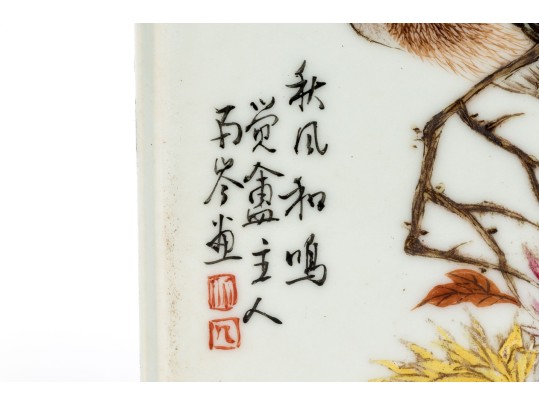 秋风和鸣
觉盦主人
雨岑画